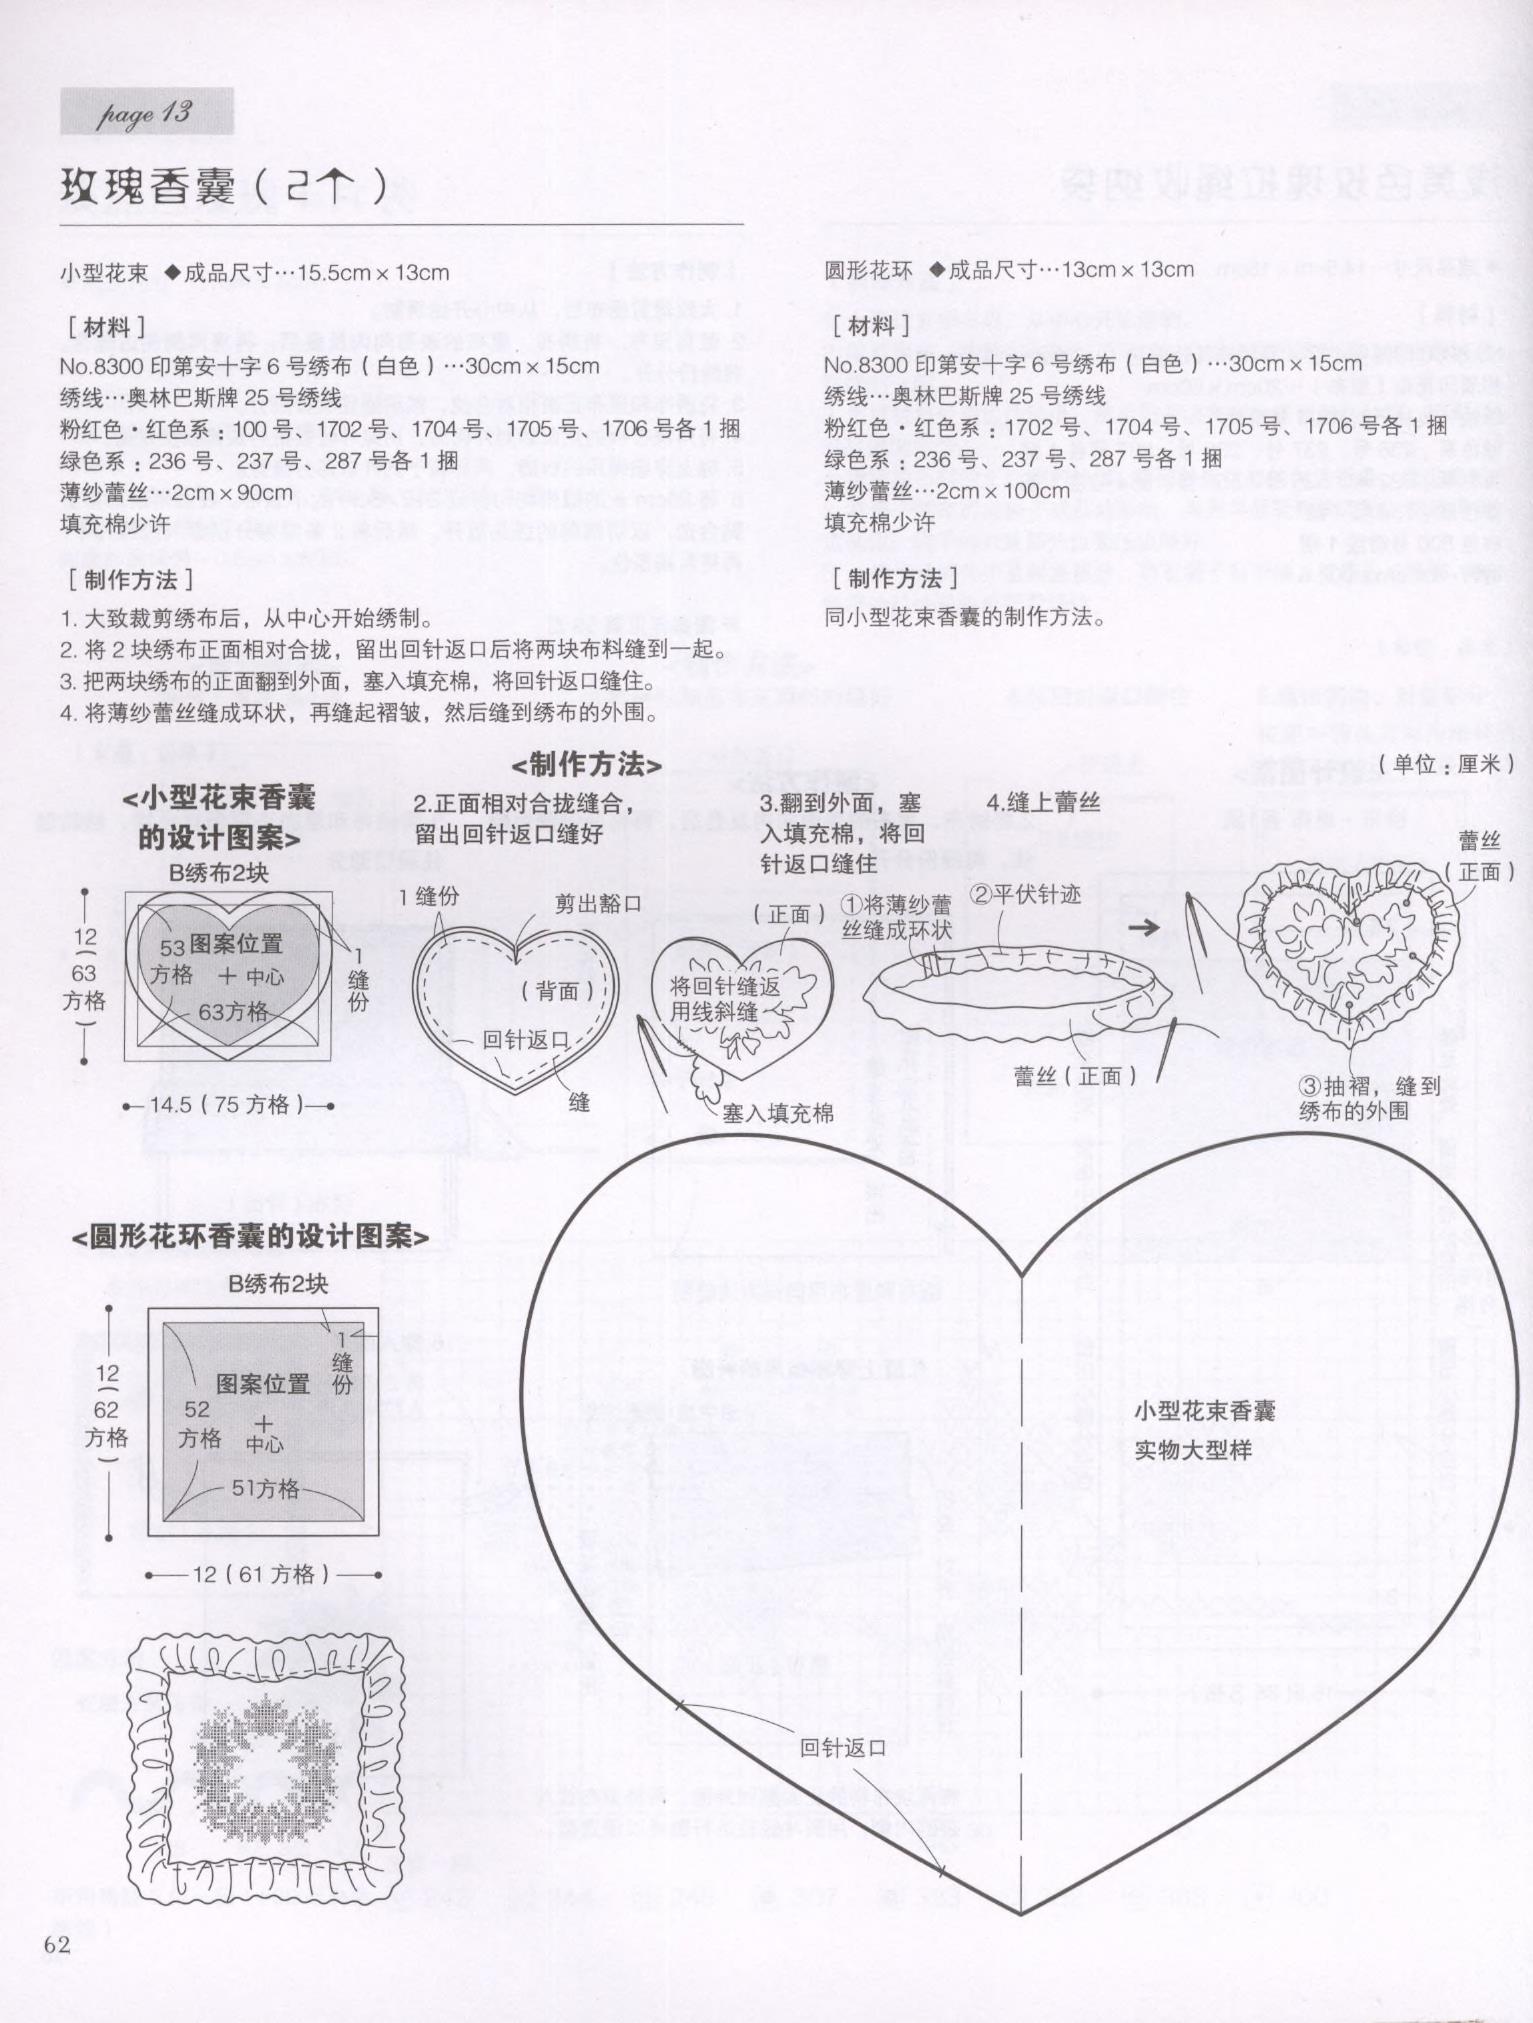 page 13
玫瑰香囊（2个）
小型花束 ◆成品尺寸…15.5cm×13cm
［材料］
No.8300 印第安十字 6 号绣布（白色）…30cm×15cm
绣线…奥林巴斯牌 25 号绣线
粉红色·红色系：100 号、1702 号、1704 号、1705 号、1706 号各 1 捆
绿色系：236 号、237 号、287 号各 1 捆
薄纱蕾丝…2cm×90cm
填充棉少许
［制作方法］
1. 大致裁剪绣布后，从中心开始绣制。
2. 将 2 块绣布正面相对合拢，留出回针返口后将两块布料缝到一起。
3. 把两块绣布的正面翻到外面，塞入填充棉，将回针返口缝住。
4. 将薄纱蕾丝缝成环状，再缝起褶皱，然后缝到绣布的外围。
圆形花环 ◆成品尺寸…13cm×13cm
［材料］
No.8300 印第安十字 6 号绣布（白色）…30cm×15cm
绣线…奥林巴斯牌 25 号绣线
粉红色·红色系：1702 号、1704 号、1705 号、1706 号各 1 捆
绿色系：236 号、237 号、287 号各 1 捆
薄纱蕾丝…2cm×100cm
填充棉少许
［制作方法］
同小型花束香囊的制作方法。
<制作方法>
（单位：厘米）
<小型花束香囊
的设计图案>
B绣布2块
12
（
63
方格
）
53
方格
图案位置
＋ 中心
63方格
1
缝
份
14.5（75 方格）
2.正面相对合拢缝合，
留出回针返口缝好
1 缝份
剪出豁口
（背面）
回针返口
缝
3.翻到外面，塞
入填充棉，将回
针返口缝住
（正面）
将回针缝返
用线斜缝
塞入填充棉
4.缝上蕾丝
①将薄纱蕾
丝缝成环状
②平伏针迹
蕾丝（正面）
→
蕾丝
（正面）
③抽褶，缝到
绣布的外围
<圆形花环香囊的设计图案>
B绣布2块
12
（
62
方格
）
1
缝
份
图案位置
52
方格
＋
中心
51方格
12（61 方格）
小型花束香囊
实物大型样
回针返口
62